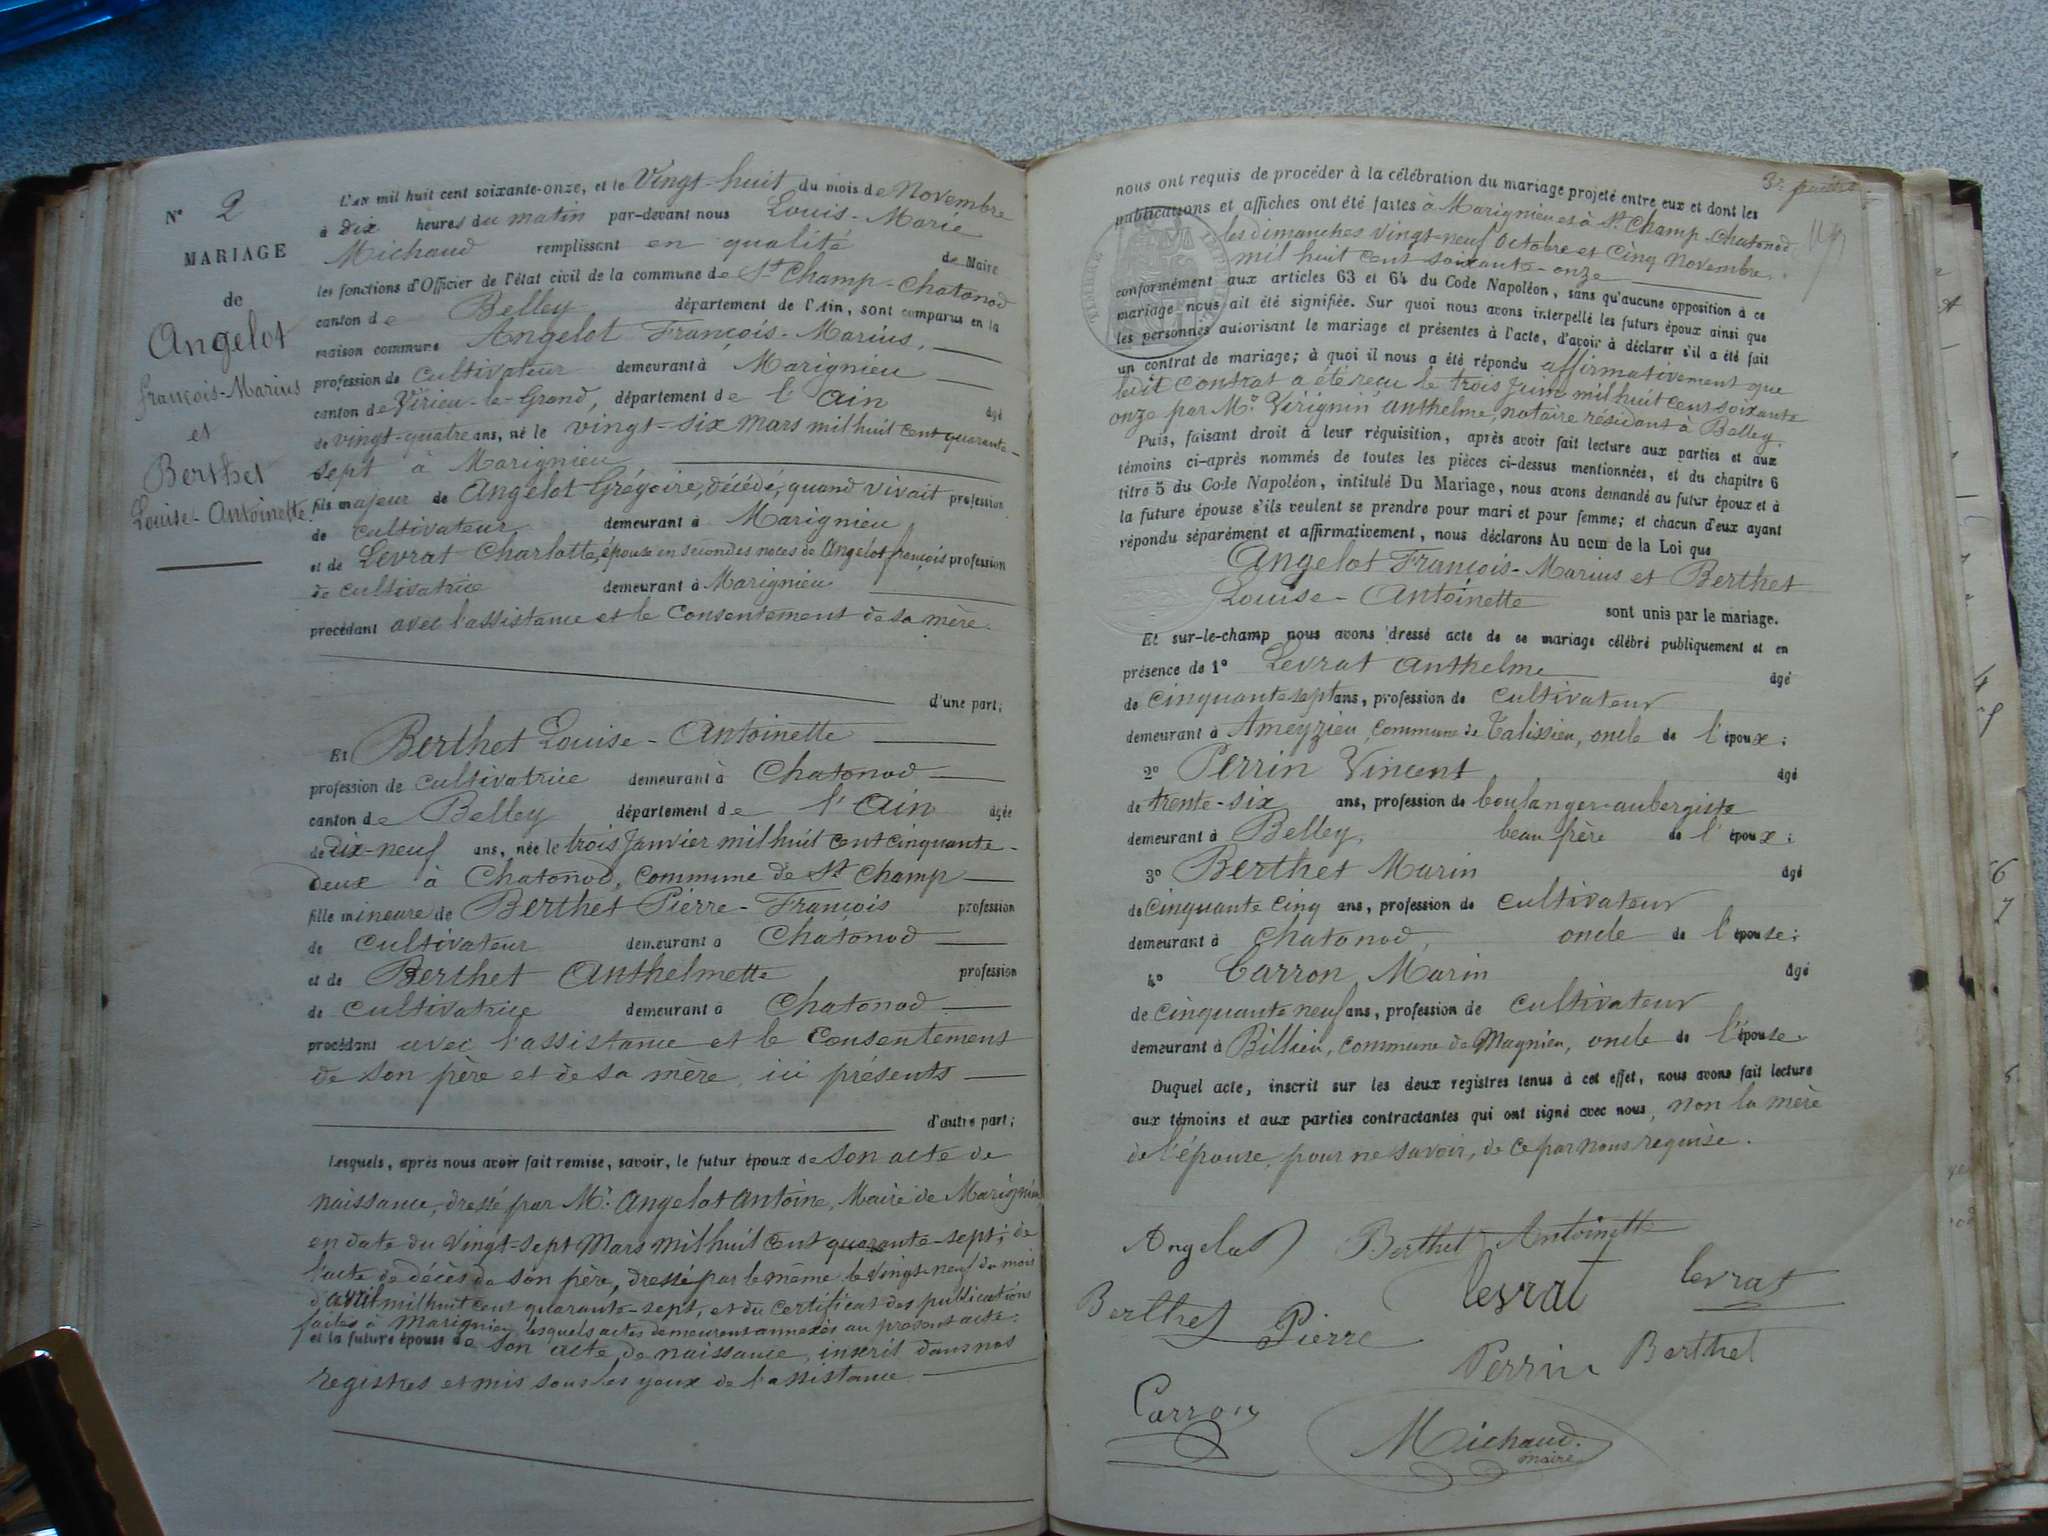 N° 2
MARIAGE
de
Angelot
François-Marius
et
Berthet
Louise-Antoinette
L'AN mil huit cent soixante-onze, et le Vingt-huit du mois de Novembre
à Dix heures du matin par-devant nous Louis-Marie
Michaud remplissant en qualité de Maire
les fonctions d'Officier de l'état civil de la commune de St Champ-Chatonod
canton de Belley département de l'Ain, sont comparus en la
maison commune Angelot François-Marius,
profession de cultivateur demeurant à Marignieu
canton de Virieu-le-Grand, département de l'Ain âgé
de vingt-quatre ans, né le vingt-six Mars mil huit cent quarante-
sept à Marignieu
fils majeur de Angelot Grégoire, décédé, quand vivait profession
de cultivateur demeurant à Marignieu
et de Levrat Charlotte, épouse en secondes noces de Angelot françois profession
de cultivatrice demeurant à Marignieu
procédant avec l'assistance et le Consentement de sa mère.
d'une part;
Et Berthet Louise-Antoinette
profession de cultivatrice demeurant à Chatonod
canton de Belley département de l'Ain âgée
de Dix-neuf ans, née le trois Janvier mil huit cent cinquante-
deux à Chatonod, commune de St Champ
fille mineure de Berthet Pierre-François profession
de cultivateur demeurant à Chatonod
et de Berthet Anthelmette profession
de cultivatrice demeurant à Chatonod
procédant avec l'assistance et le Consentement
de son père et de sa mère, ici présents
d'autre part;
Lesquels, après nous avoir fait remise, savoir, le futur époux de son acte de
naissance, dressé par Mr. Angelot Antoine, Maire de Marignieu
en date du vingt-sept Mars mil huit cent quarante-sept; de
l'acte de décès de son père, dressé par le même le vingt-neuf du mois
d'avril mil huit cent quarante-sept, et du certificat des publications
faites à Marignieu, lesquels actes demeurent annexés au présent acte:
et la future épouse de son acte de naissance, inscrit dans nos
registres et mis sous les yeux de l'assistance.
nous ont requis de procéder à la célébration du mariage projeté entre eux et dont les
publications et affiches ont été faites à Marignieu et à St Champ-Chatonod
les dimanches vingt-neuf Octobre et Cinq Novembre
mil huit cent soixante-onze
conformément aux articles 63 et 64 du Code Napoléon, sans qu'aucune opposition à ce
mariage nous ait été signifiée. Sur quoi nous avons interpellé les futurs époux ainsi que
les personnes autorisant le mariage et présentes à l'acte, d'avoir à déclarer s'il a été fait
un contrat de mariage; à quoi il nous a été répondu affirmativement que
ledit Contrat a été reçu le trois Juin mil huit cent soixante
onze par Me. Virignin Anthelme, notaire résidant à Belley.
Puis, faisant droit à leur réquisition, après avoir fait lecture aux parties et aux
témoins ci-après nommés de toutes les pièces ci-dessus mentionnées, et du chapitre 6
titre 5 du Code Napoléon, intitulé Du Mariage, nous avons demandé au futur époux et à
la future épouse s'ils veulent se prendre pour mari et pour femme; et chacun d'eux ayant
répondu séparément et affirmativement, nous déclarons Au nom de la Loi que
Angelot François-Marius et Berthet
Louise-Antoinette sont unis par le mariage.
Et sur-le-champ nous avons dressé acte de ce mariage célébré publiquement et en
présence de 1° Levrat Anthelme âgé
de cinquante sept ans, profession de cultivateur
demeurant à Ameyzieu, commune de Talissieu, oncle de l'époux;
2° Perrin Vincent âgé
de trente-six ans, profession de boulanger-aubergiste
demeurant à Belley, beau frère de l'époux;
3° Berthet Marin âgé
de cinquante cinq ans, profession de cultivateur
demeurant à Chatonod, oncle de l'épouse;
4° Carron Marin âgé
de cinquante neuf ans, profession de cultivateur
demeurant à Billieu, commune de Magnieu, oncle de l'épouse.
Duquel acte, inscrit sur les deux registres tenus à cet effet, nous avons fait lecture
aux témoins et aux parties contractantes qui ont signé avec nous, non la mère
de l'épouse, pour ne savoir, de ce par nous requise.
Angelot Berthet Antoinette
Levrat Levrat
Berthet Pierre
Perrin Berthet
Carron
Michaud
maire